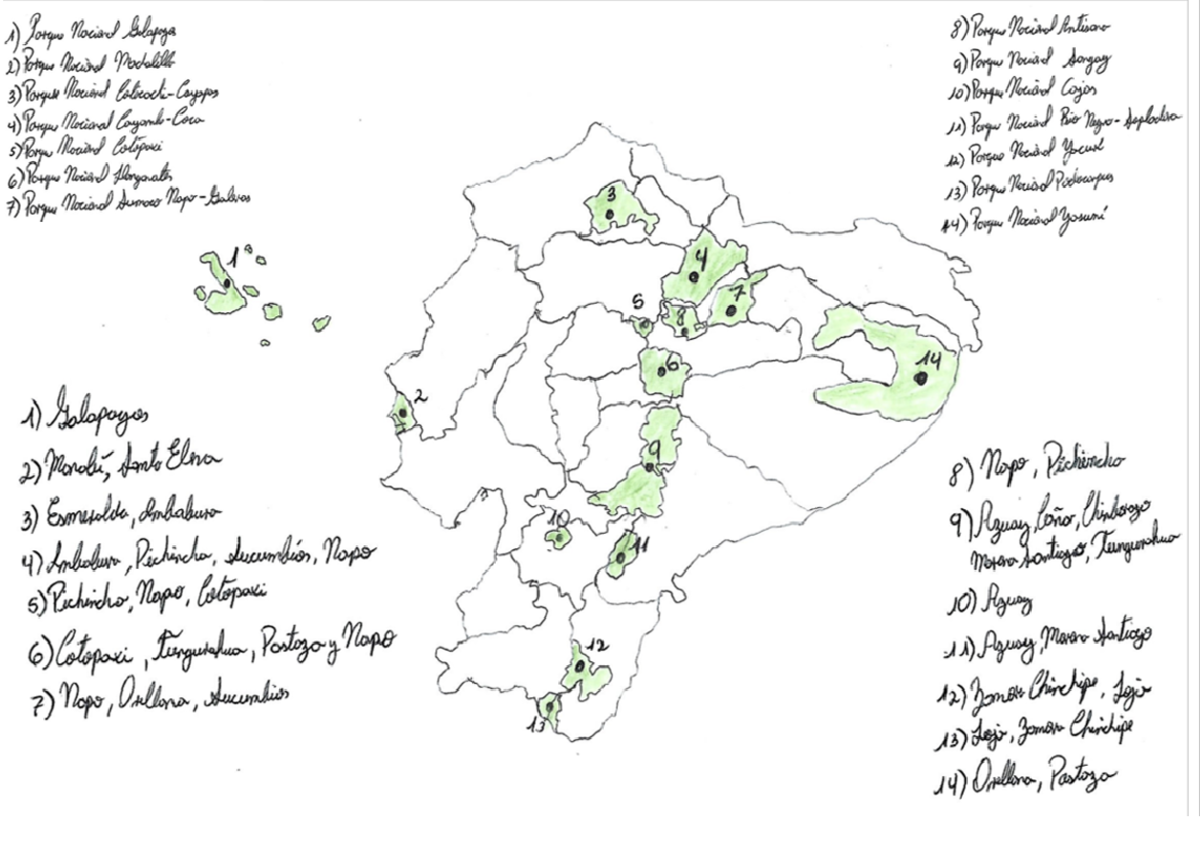 1) Parque Nacional Galapagos
2) Parque Nacional Machalilla
3) Parque Nacional Cotacachi-Cayapas
4) Parque Nacional Cayambe-Coca
5) Parque Nacional Cotopaxi
6) Parque Nacional Llanganates
7) Parque Nacional Sumaco Napo-Galeras
8) Parque Nacional Antisana
9) Parque Nacional Sangay
10) Parque Nacional Cajas
11) Parque Nacional Rio Negro-Sopladora
12) Parque Nacional Yacuri
13) Parque Nacional Podocarpus
14) Parque Nacional Yasuní
1
2
3
4
5
6
7
8
9
10
11
12
13
14
1) Galapagos
2) Manabí, Santa Elena
3) Esmeralda, Imbabura
4) Imbabura, Pichincha, Sucumbíos, Napo
5) Pichincha, Napo, Cotopaxi
6) Cotopaxi, Tungurahua, Pastaza y Napo
7) Napo, Orellana, Sucumbios
8) Napo, Pichincha
9) Azuay, Cañar, Chimborazo
Morona Santiago, Tungurahua
10) Azuay
11) Azuay, Morona Santiago
12) Zamora Chinchipe, Loja
13) Loja, Zamora Chinchipe
14) Orellana, Pastaza